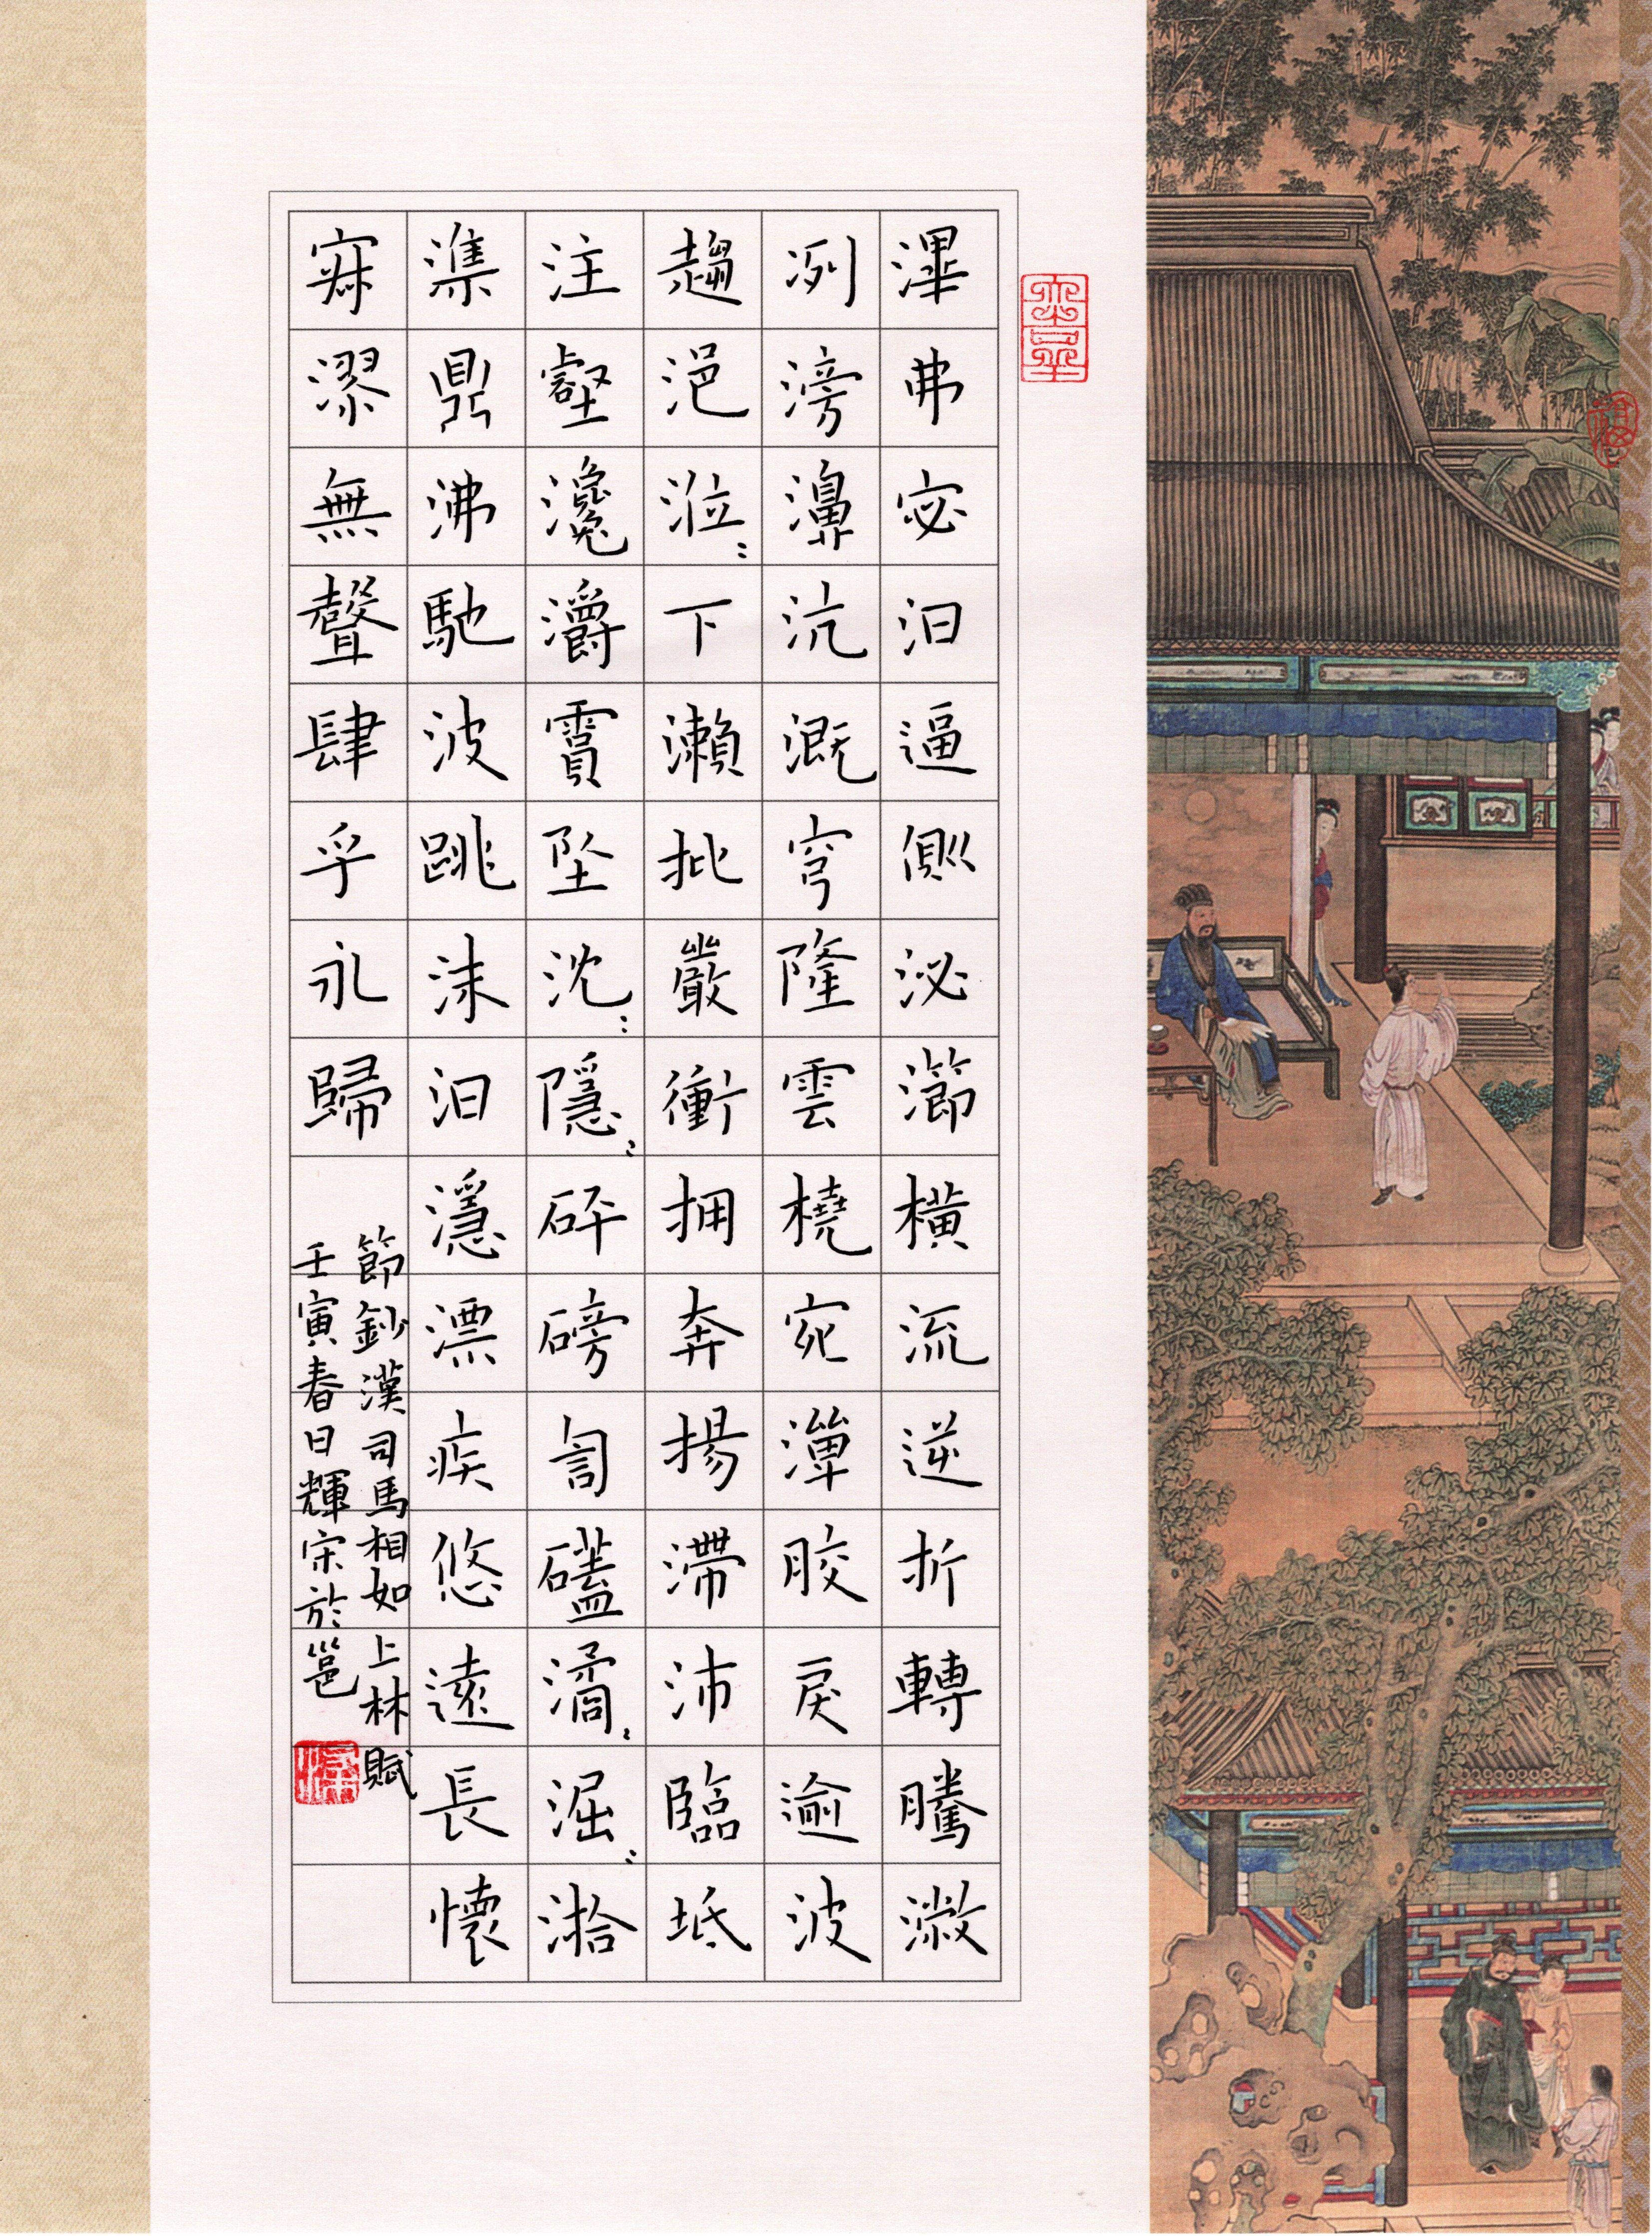 滭弗宓汨逼側泌瀄橫流逆折轉騰潎
洌滂濞沆溉穹隆雲橈宛潬膠戾逾波
趨浥涖〻下瀨批巖衝擁奔揚滯沛臨坻
注壑瀺灂霣墜沈〻隱〻砰磅訇磕潏〻淈〻湁
潗鼎沸馳波跳沫汩㴔漂疾悠遠長懷
寂漻無聲肆乎永歸
節鈔漢司馬相如上林賦
壬寅春日輝宋於邕